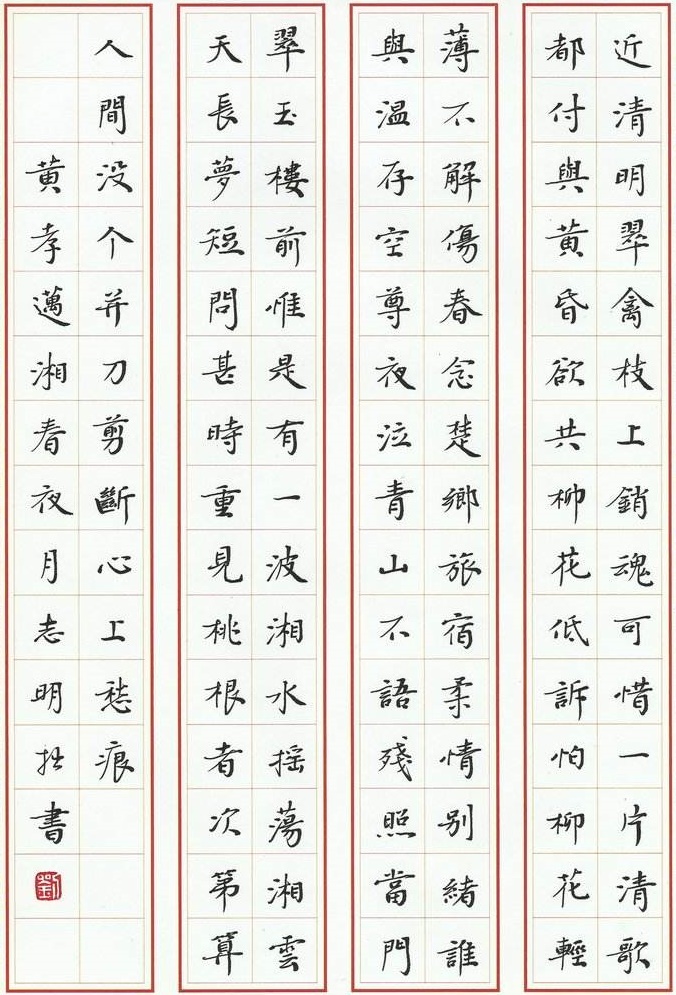 近清明翠禽枝上銷魂可惜一片清歌
都付與黃昏欲共柳花低訴怕柳花輕
薄不解傷春念楚鄉旅宿柔情別緒誰
與溫存空尊夜泣青山不語殘照當門
翠玉樓前惟是有一波湘水搖蕩湘雲
天長夢短問甚時重見桃根者次第算
人間没个并刀剪斷心上愁痕
黃孝邁湘春夜月志明拙書
劉